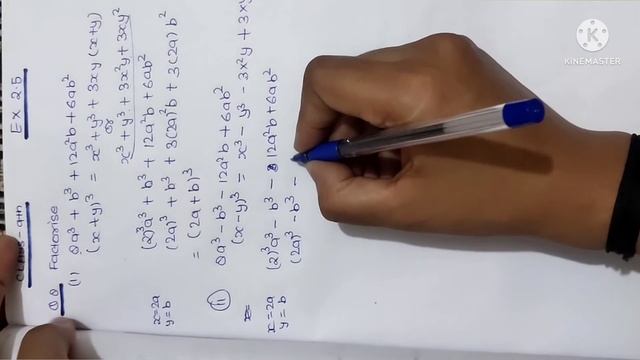 CLASS-9th Ex 2.5
Q8 Factorise
(i) 8a³ + b³ + 12a²b + 6ab²
(x+y)³ = x³ + y³ + 3xy (x+y)
or
x³ + y³ + 3x²y + 3xy²
(2)³a³ + b³ + 12a²b + 6ab²
x=2a
y=b
(2a)³ + b³ + 3(2a)²b + 3(2a)b²
= (2a+b)³
(ii) 8a³ - b³ - 12a²b + 6ab²
(x-y)³ = x³ - y³ - 3x²y + 3xy
x=
(2)³a³ - b³ - 12a²b + 6ab²
x=2a
y=b
(2a)³ - b³ -
KINEMASTER